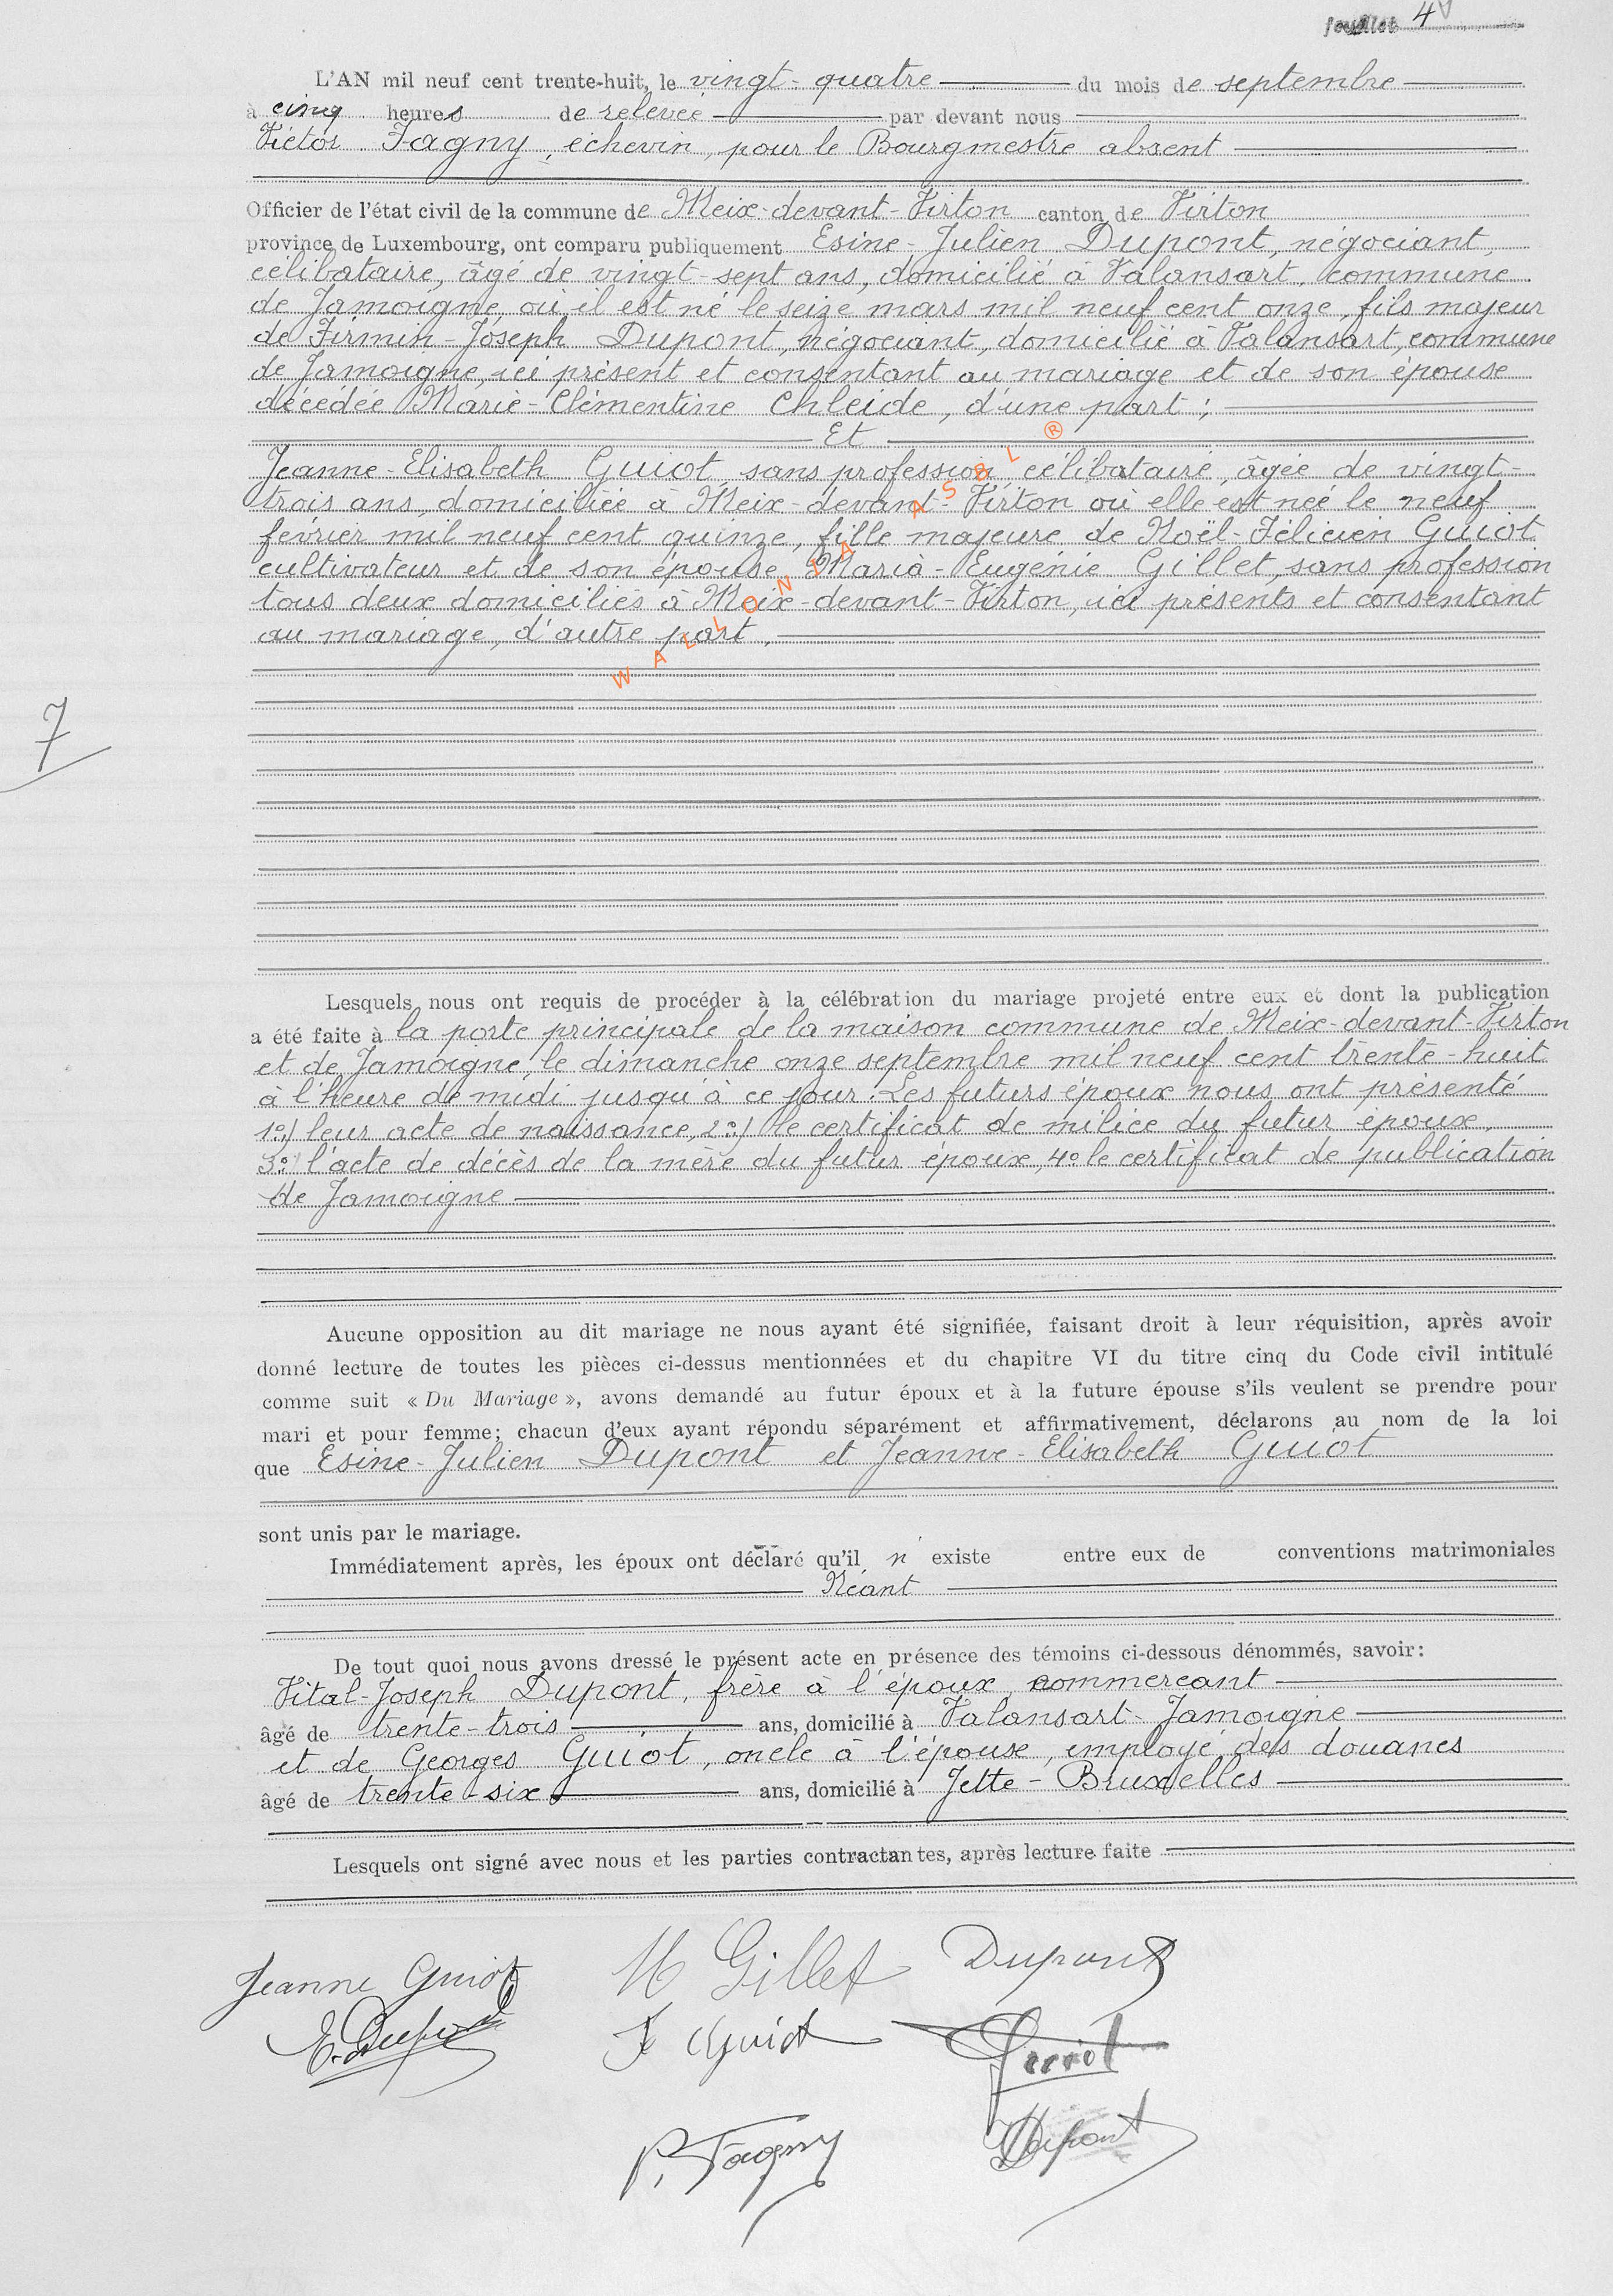 feuillet 4
L'AN mil neuf cent trente-huit, le vingt-quatre du mois de septembre
à cinq heures de relevée par devant nous
Victor Fagny, échevin, pour le Bourgmestre absent
Officier de l'état civil de la commune de Meix-devant-Virton canton de Virton
province de Luxembourg, ont comparu publiquement Esine-Julien Dupont, négociant,
célibataire, âgé de vingt-sept ans, domicilié à Valansart, commune
de Jamoigne, où il est né le seize mars mil neuf cent onze, fils majeur
de Firmin-Joseph Dupont, négociant, domicilié à Valansart, commune
de Jamoigne, ici présent et consentant au mariage et de son épouse
décédée Marie-Clémentine Chleide, d'une part;
Et
Jeanne-Elisabeth Guiot, sans profession, célibataire, âgée de vingt-
trois ans, domiciliée à Meix-devant-Virton où elle est née le neuf
février mil neuf cent quinze, fille majeure de Noël-Félicien Guiot
cultivateur et de son épouse Maria-Eugénie Gillet, sans profession
tous deux domiciliés à Meix-devant-Virton, ici présents et consentant
au mariage, d'autre part,
WALLONIA ASBL ®
7
Lesquels nous ont requis de procéder à la célébration du mariage projeté entre eux et dont la publication
a été faite à la porte principale de la maison commune de Meix-devant-Virton
et de Jamoigne, le dimanche onze septembre mil neuf cent trente-huit
à l'heure de midi jusqu'à ce jour. Les futurs époux nous ont présenté
1°/ leur acte de naissance, 2°/ le certificat de milice du futur époux,
3° l'acte de décès de la mère du futur époux, 4° le certificat de publication
de Jamoigne
Aucune opposition au dit mariage ne nous ayant été signifiée, faisant droit à leur réquisition, après avoir
donné lecture de toutes les pièces ci-dessus mentionnées et du chapitre VI du titre cinq du Code civil intitulé
comme suit « Du Mariage », avons demandé au futur époux et à la future épouse s'ils veulent se prendre pour
mari et pour femme; chacun d'eux ayant répondu séparément et affirmativement, déclarons au nom de la loi
que Esine-Julien Dupont et Jeanne-Elisabeth Guiot
sont unis par le mariage.
Immédiatement après, les époux ont déclaré qu'il n'existe entre eux de conventions matrimoniales
Néant
De tout quoi nous avons dressé le présent acte en présence des témoins ci-dessous dénommés, savoir:
Vital-Joseph Dupont, frère à l'époux, commercant
âgé de trente-trois ans, domicilié à Valansart-Jamoigne
et de Georges Guiot, oncle à l'épouse, employé des douanes
âgé de trente-six ans, domicilié à Jette-Bruxelles
Lesquels ont signé avec nous et les parties contractantes, après lecture faite
Jeanne Guiot M Gillet Dupont
E. Dupont F Guiot Guiot
V. Fagny VDupont